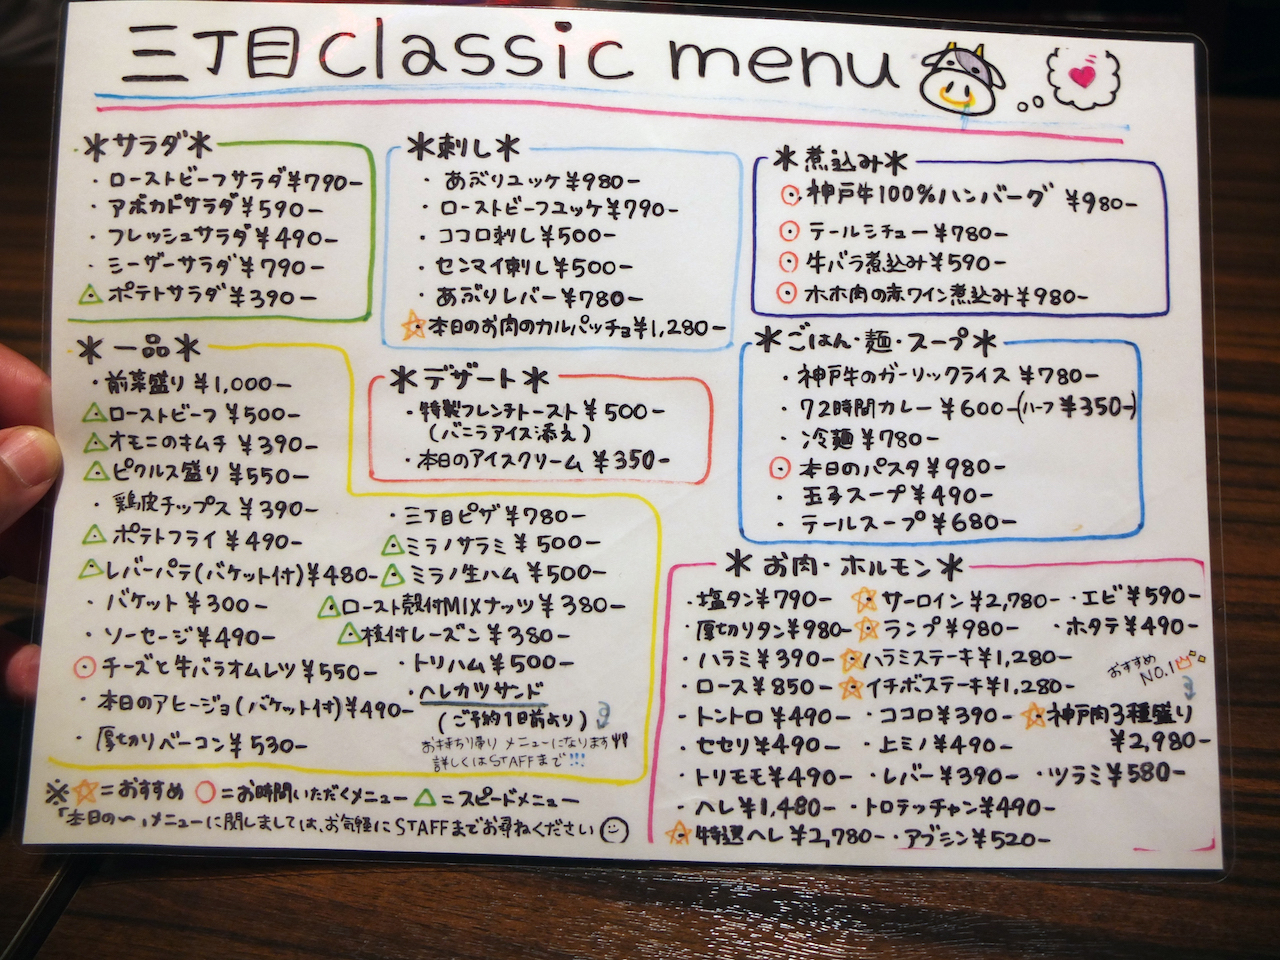 三丁目classic menu
*サラダ*
・ローストビーフサラダ¥790-
・アボカドサラダ¥590-
・フレッシュサラダ¥490-
・シーザーサラダ¥790-
△ポテトサラダ¥390-
*刺し*
・あぶりユッケ¥980-
・ローストビーフユッケ¥790-
・ココロ刺し¥500-
・センマイ刺し¥500-
・あぶりレバー¥780-
☆本日のお肉のカルパッチョ¥1,280-
*煮込み*
○神戸牛100%ハンバーグ ¥980-
○テールシチュー¥780-
○牛バラ煮込み¥590-
○ホホ肉の赤ワイン煮込み¥980-
*一品*
・前菜盛り¥1,000-
△ローストビーフ¥500-
△オモニのキムチ¥390-
△ピクルス盛り¥550-
・鶏皮チップス¥390-
△ポテトフライ¥490-
△レバーパテ(バケット付)¥480-
・バケット¥300-
・ソーセージ¥490-
○チーズと牛バラオムレツ¥550-
・本日のアヒージョ(バケット付)¥490-
・厚切りベーコン¥530-
・三丁目ピザ¥780-
△ミラノサラミ¥500-
△ミラノ生ハム¥500-
△ロースト殻付MIXナッツ¥380-
△枝付レーズン¥380-
・トリハム¥500-
・ヘレカツサンド
(ご予約1日前より)
お持ち帰りメニューになります
詳しくはSTAFFまで!!!
*デザート*
・特製フレンチトースト¥500-
(バニラアイス添え)
・本日のアイスクリーム¥350-
*ごはん・麺・スープ*
・神戸牛のガーリックライス¥780-
・72時間カレー¥600-(ハーフ¥350-)
・冷麺¥780-
○本日のパスタ¥980-
・玉子スープ¥490-
・テールスープ¥680-
*お肉・ホルモン*
・塩タン¥790-
・厚切りタン¥980-
・ハラミ¥390-
・ロース¥850-
・トントロ¥490-
・セセリ¥490-
・トリモモ¥490-
・ヘレ¥1,480-
☆特選ヘレ¥2,780-
☆サーロイン¥2,780-
☆ランプ¥980-
☆ハラミステーキ¥1,280-
☆イチボステーキ¥1,280-
・ココロ¥390-
・上ミノ¥490-
・レバー¥390-
・トロテッチャン¥490-
・アブシン¥520-
・エビ¥590-
・ホタテ¥490-
おすすめ
NO.1
☆神戸肉3種盛り
¥2,980-
・ツラミ¥580-
※☆=おすすめ ○=お時間いただくメニュー △=スピードメニュー
「本日の〜」メニューに関しましては、お気軽にSTAFFまでお尋ねください